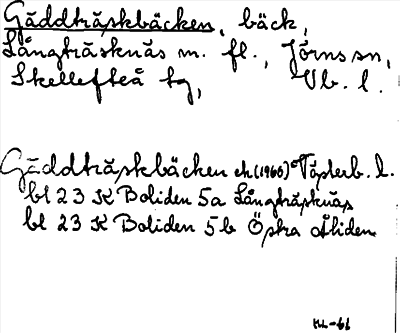 Gäddträskbäcken, bäck,
Långträsknäs m. fl., Jörns sn,
Skellefteå tg, Vb. l.
Gäddträskbäcken ek (1966) Västerb. l.
bl 23 K Boliden 5a Långträsknäs
bl 23 K Boliden 5b Östra Åliden
HL-66